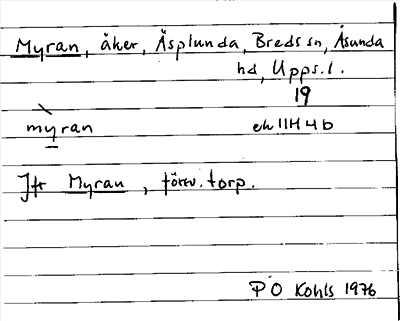 Myran, åker, Äsplunda, Breds sn, Åsunda
hd, Upps.l.
19
myran ek 11H4b
Jfr Myran, försv. torp.
P O Kohls 1976